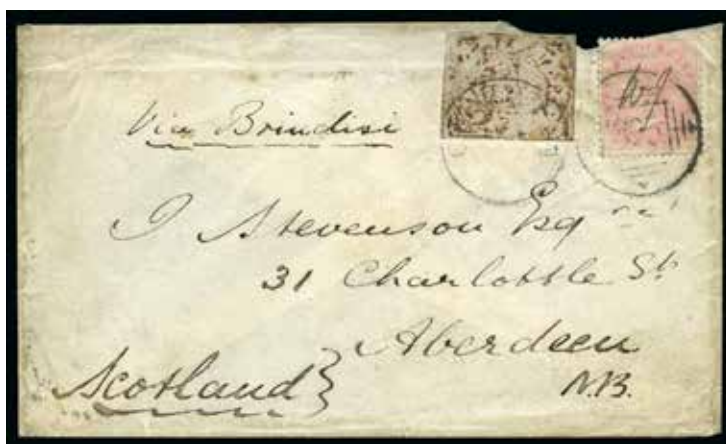 Via Brindisi
J Stevenson Esq
31 Charlotte St
Aberdeen
Scotland
N.B.